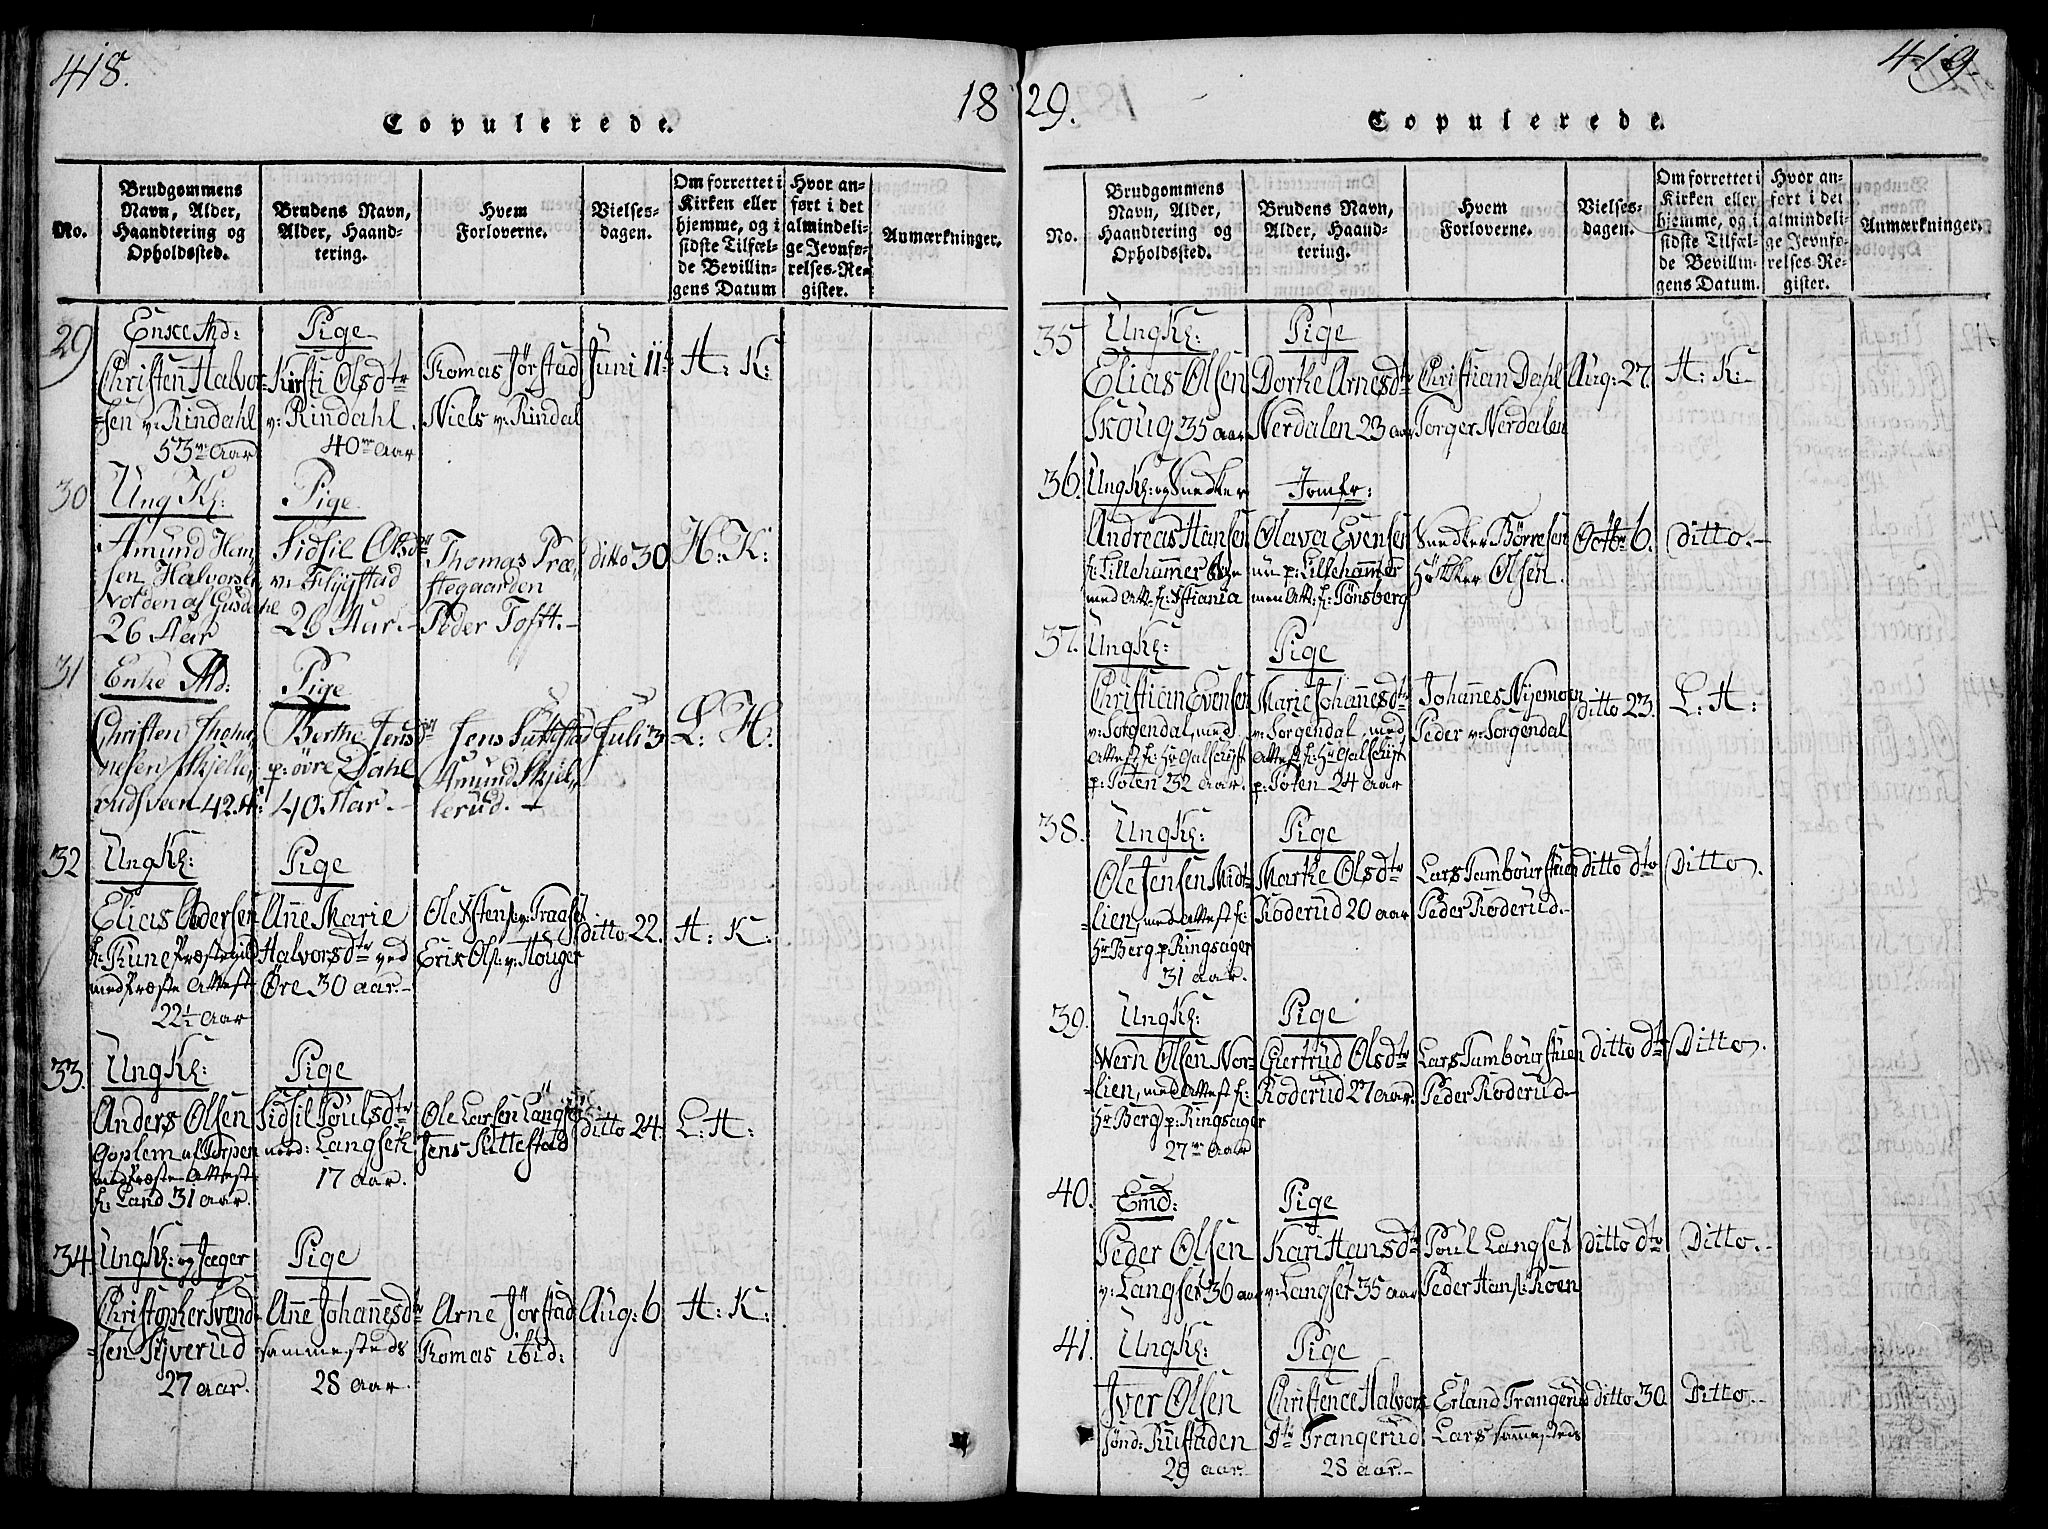 418.
1829.
Copulerede.
No.
Brudgommens Navn, Alder, Haandtering og Opholdssted.
Brudens Navn, Alder, Haandtering.
Hvem Forloverne.
Vielsesdagen.
Om forrettet i Kirken eller hjemme, og i sidste Tilfælde Bevillingens Datum
Hvor anført i det almindelige Jevnførelses-Register.
Anmærkninger.
29
Enke Md:
Christen Halvor-
sen v: Rindahl
53 aar
Pige
Kirsti Olsdtr
v: Rindahl
40 aar
Thomas Jørstad
Niels v: Rindal
Juni 11
H: K:
30
Ung K:
Amund Han-
sen Halvorsh
volden af Gusdahl
26 Aar
Pige
Sidsil Olsdtr
v: Flygstad
26 Aar.
Thomas Præ-
stegaarden
Peder Toft.
ditto 30
H: K:
31
Enke Md:
Christen Johan-
nesen Skjelle-
rudsveen 42 A:
Pige
Berthe Jensdtr
p: øvre Dahl
40 Aar.
Jens Suttestad
Amund Skjel-
lerud.
Juli 3
L: H:
32
Ung K:
Elias Pedersen
f: Rune Præstegield
med Præste Attest
22½ Aar
Pige
Anne Marie
Halvorsdtr ved
Øre 30 aar.
Ole Stens: v: Traaset
Erik Ols: v: Houger
ditto 22.
H: K:
33.
Ung K:
Anders Olsen
Goplem al Torpen
med Præste Attest
f: Land 31 aar.
Pige
Sidsil Poulsdtr
nord: Langseth
17 aar.
Ole Larsen Langset
Jens Suttestad
ditto 24.
L: H:
34
Ung K: og Jæger
Christopher Svend-
sen Syverud
27 aar.
Pige
Anne Johannesdtr
sammesteds
28 aar.
Arne Jørstad
Thomas ibid:
Aug: 6
H: K:
419.
Copulerede.
No.
Brudgommens Navn, Alder, Haandtering og Opholdssted.
Brudens Navn, Alder, Haandtering.
Hvem Forloverne.
Vielsesdagen.
Om forrettet i Kirken eller hjemme, og i sidste Tilfælde Bevillingens Datum.
Hvor anført i det almindelige Jevnførelses-Register.
Anmærkninger.
35
Ung K:
Elias Olsen
Skoug 35 aar
Pige
Dorthe Arnesdtr
Nerdalen 23 aar
Christian Dahl
Torger Nerdalen
Aug: 27.
H: K:
36.
Ung K: og Snedker
Andreas Hansen
f: Lillehamer
med Att: f: Xstiania
Jomfr:
Olava Evensen
nu p: Lillehammer
men Att: f: Tønsberg
Snedker Børresen
Høkker Olsen.
Octbr 6.
ditto.
37.
Ung K:
Christian Evensen
v: Sorgendal, med
Attest f: Hr Galschjøt
p: Toten 32 aar.
Pige
Marie Johannesdtr
v: Sorgendal, med
Attest f: Hr Galschjøt
p: Toten 24 aar
Johannes Nyemoen
Peder v: Sorgendal
ditto 23.
L: H:
38.
Ung K:
Ole Jensen Midt-
lien, med Attest f:
Hr Berg p: Ringsager
31 aar.
Pige
Marthe Olsdtr
Roderud 20 aar
Lars Tambourstuen
Peder Roderud.
ditto dto
Ditto.
39.
Ung K:
Wern Olsen Nor-
lien, med Attest f:
Hr Berg p: Ringsager
27 aar
Pige
Giertrud Olsdtr
Roderud 27 aar.
Lars Tambourstuen
Peder Roderud.
ditto dto
Ditto.
40.
Emd:
Peder Olsen
v: Langset 36 aar
Pige
Kari Hansdtr
v: Langset 35 aar
Poul Langset
Peder Hans: Roen
ditto dto
Ditto.
41.
Ung K:
Iver Olsen
sønd: Rustaden
29 aar.
Pige
Christence Halvors-
dtr Trangerud
28 aar.
Erland Trangerud
Lars sammesteds
ditto 30.
Ditto.